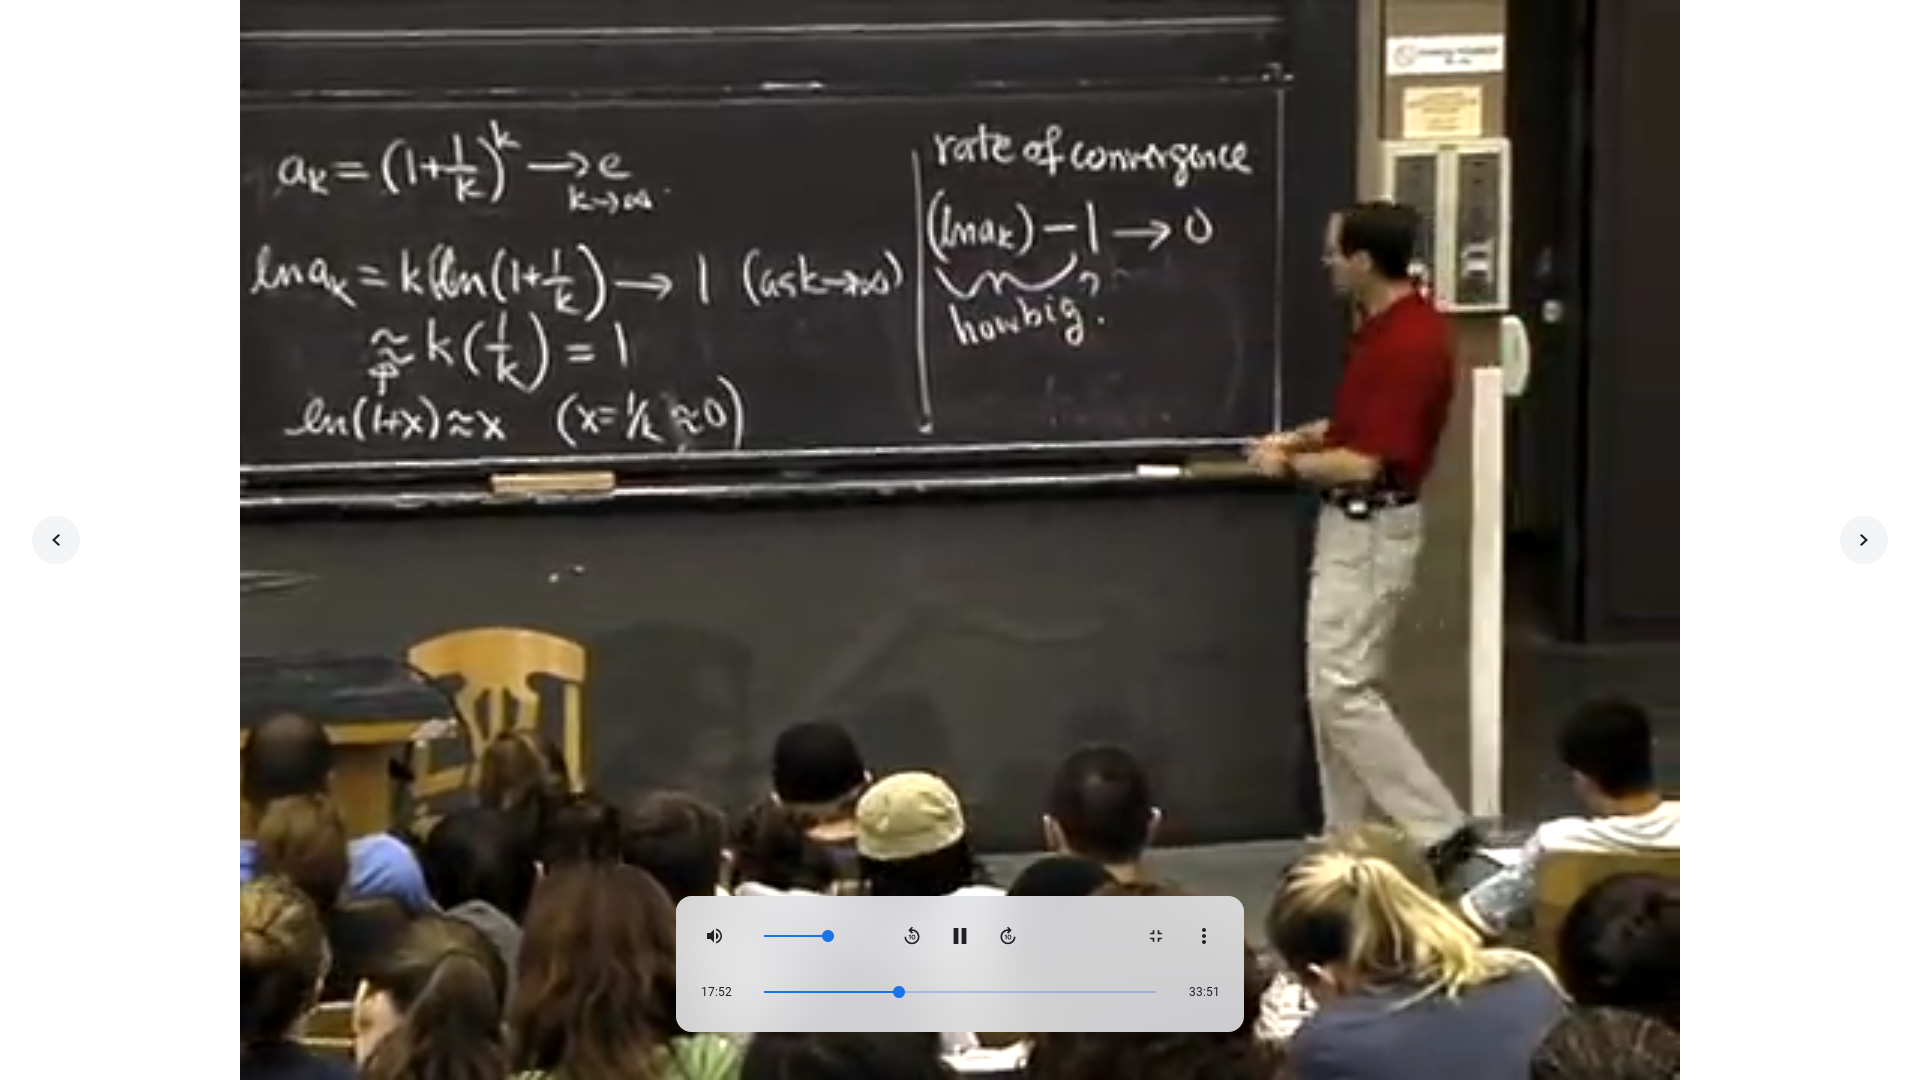 a_k = (1+1/k)^k → e
k→∞
ln a_k = k ln(1+1/k) → 1 (as k→∞)
≈ k(1/k) = 1
ln(1+x) ≈ x (x=1/k ≈ 0)
rate of convergence
(ln a_k) - 1 → 0
how big?
10
10
17:52
33:51